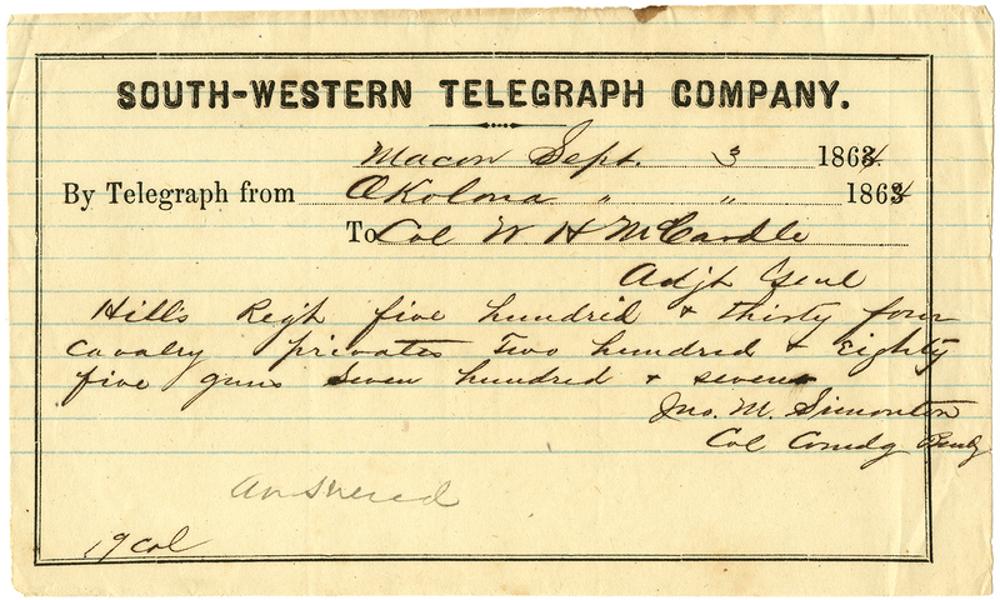 SOUTH-WESTERN TELEGRAPH COMPANY.
Macon Sept. 3 1864
By Telegraph from Okolona " " 1864
To Col W. H McCardle
Adjt Genl
Hills Regt five hundrid & thirty four
Cavalry privates Two hundred & Eighty
five guns Seven hundred & seven
Jno. M. Simonton
Col Comdg
answered
19 Col